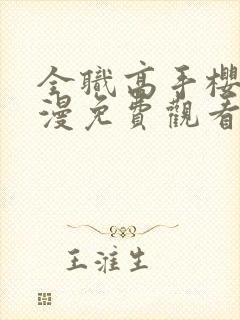 全職高手櫻
漫免費觀看
王淮生